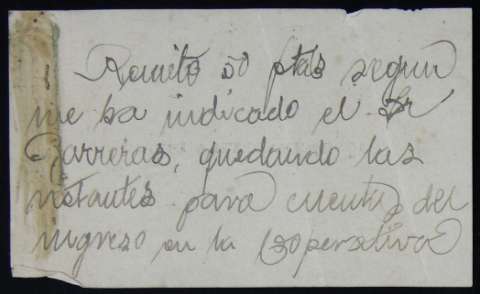 Remito 50 ptas segun
me ha indicado el Sr
Carreras, quedando las
restantes para cuenta del
ingreso en la Cooperativa